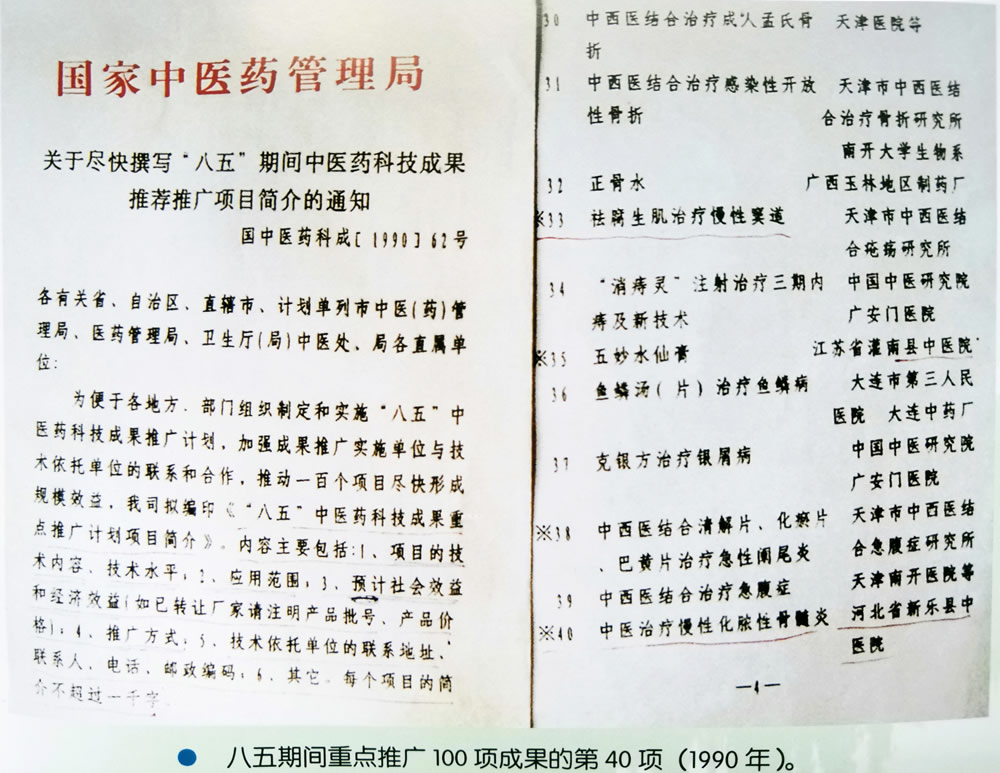 国家中医药管理局
关于尽快撰写“八五”期间中医药科技成果
推荐推广项目简介的通知
国中医药科成[1990]62号
各有关省、自治区、直辖市、计划单列市中医(药)管
理局、医药管理局、卫生厅(局)中医处、局各直属单
位:
为便于各地方、部门组织制定和实施“八五”中
医药科技成果推广计划,加强成果推广实施单位与技
术依托单位的联系和合作,推动一百个项目尽快形成
规模效益,我司拟编印《“八五”中医药科技成果重
点推广计划项目简介》。内容主要包括:1、项目的技
术内容、技术水平;2、应用范围;3、预计社会效益
和经济效益(如已转让厂家请注明产品批号、产品价
格);4、推广方式;5、技术依托单位的联系地址、
联系人、电话、邮政编码;6、其它。每个项目的简
介不超过一千字。
30 中西医结合治疗成人孟氏骨 天津医院等
折
31 中西医结合治疗感染性开放 天津市中西医结
性骨折 合治疗骨折研究所
南开大学生物系
32 正骨水 广西玉林地区制药厂
※33 祛腐生肌治疗慢性窦道 天津市中西医结
合疮疡研究所
34 “消痔灵”注射治疗三期内 中国中医研究院
痔及新技术 广安门医院
※35 五妙水仙膏 江苏省灌南县中医院
36 鱼鳞汤(片)治疗鱼鳞病 大连市第三人民
医院 大连中药厂
37 克银方治疗银屑病 中国中医研究院
广安门医院
※38 中西医结合清解片、化瘀片 天津市中西医结
、巴黄片治疗急性阑尾炎 合急腹症研究所
39 中西医结合治疗急腹症 天津南开医院等
※40 中医治疗慢性化脓性骨髓炎 河北省新乐县中
医院
—4—
● 八五期间重点推广100项成果的第40项(1990年)。